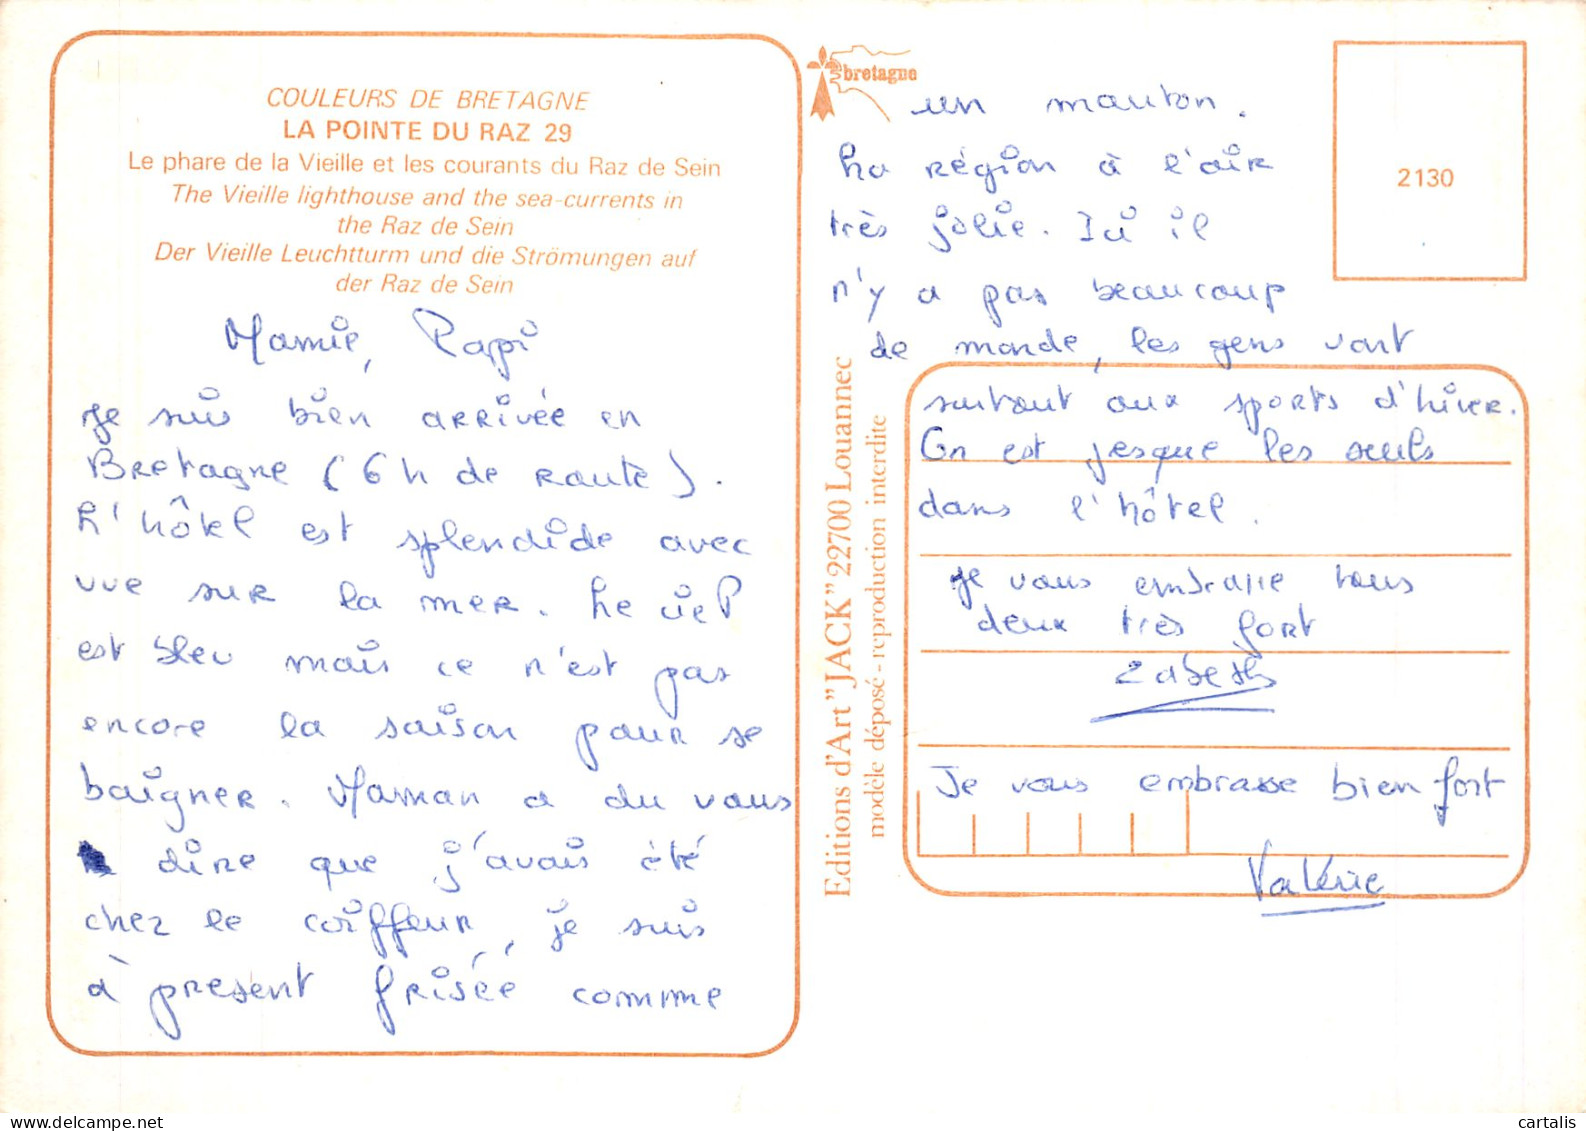 COULEURS DE BRETAGNE
LA POINTE DU RAZ 29
Le phare de la Vieille et les courants du Raz de Sein
The Vieille lighthouse and the sea-currents in
the Raz de Sein
Der Vieille Leuchtturm und die Strömungen auf
der Raz de Sein
Mamie, Papi
Je suis bien arrivée en
Bretagne (6 h de route).
L'hôtel est splendide avec
vue sur la mer. Le ciel
est bleu mais ce n'est pas
encore la saison pour se
baigner. Maman a du vous
dire que j'avais été
chez le coiffeur, je suis
à présent frisée comme
bretagne
un mouton.
La région à l'air
très jolie. Ici il
n'y a pas beaucoup
de monde, les gens vont
surtout aux sports d'hiver.
On est presque les seuls
dans l'hôtel.
Je vous embrasse tous
deux très fort
Zabeth
Je vous embrasse bien fort
Valérie
2130
Editions d'Art "JACK" 22700 Louannec
modèle déposé - reproduction interdite
cartalis